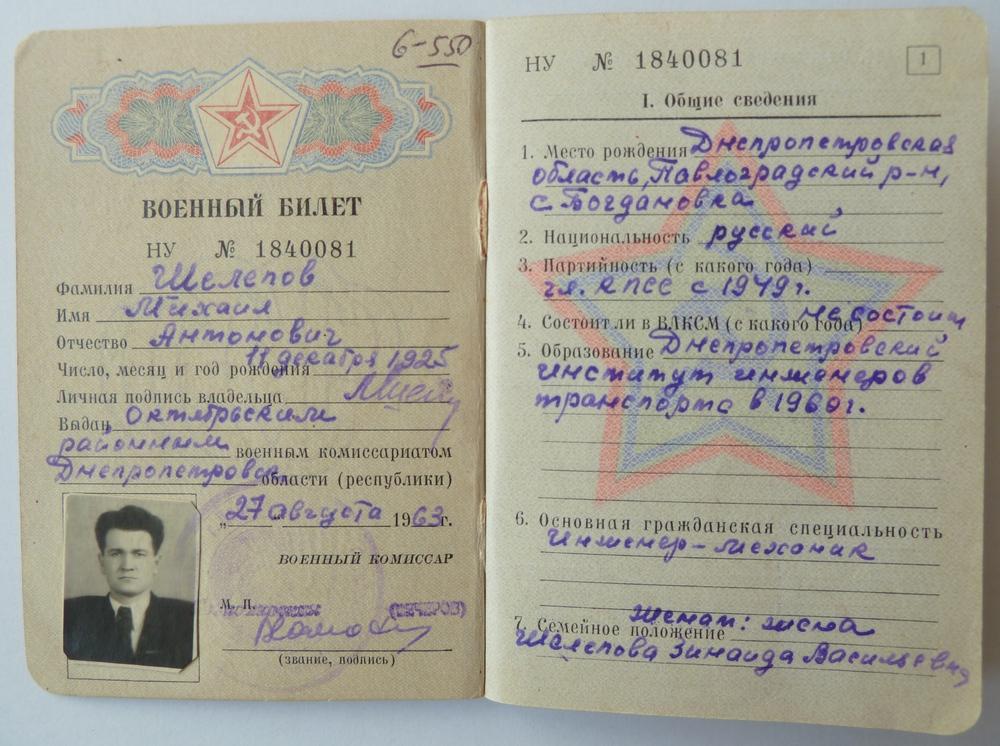 6-550
ВОЕННЫЙ БИЛЕТ
НУ № 1840081
Фамилия Шелепов
Имя Михаил
Отчество Антонович
Число, месяц и год рождения 11 декабря 1925
Личная подпись владельца
Выдан Октябрьским
районным военным комиссариатом
Днепропетровск. области (республики)
„27" августа 1963г.
ВОЕННЫЙ КОМИССАР
М. П.
(ПЕЧЕРОВ)
(звание, подпись)
НУ № 1840081
1
I. Общие сведения
1. Место рождения Днепропетровская
область, Павлоградский р-н,
с. Богдановка
2. Национальность русский
3. Партийность (с какого года)
чл. КПСС с 1949 г.
4. Состоит ли в ВЛКСМ (с какого года) не состоит
5. Образование Днепропетровский
институт инженеров
транспорта в 1960 г.
6. Основная гражданская специальность
Инженер-механик
7. Семейное положение женат: жена
Шелепова Зинаида Васильевна